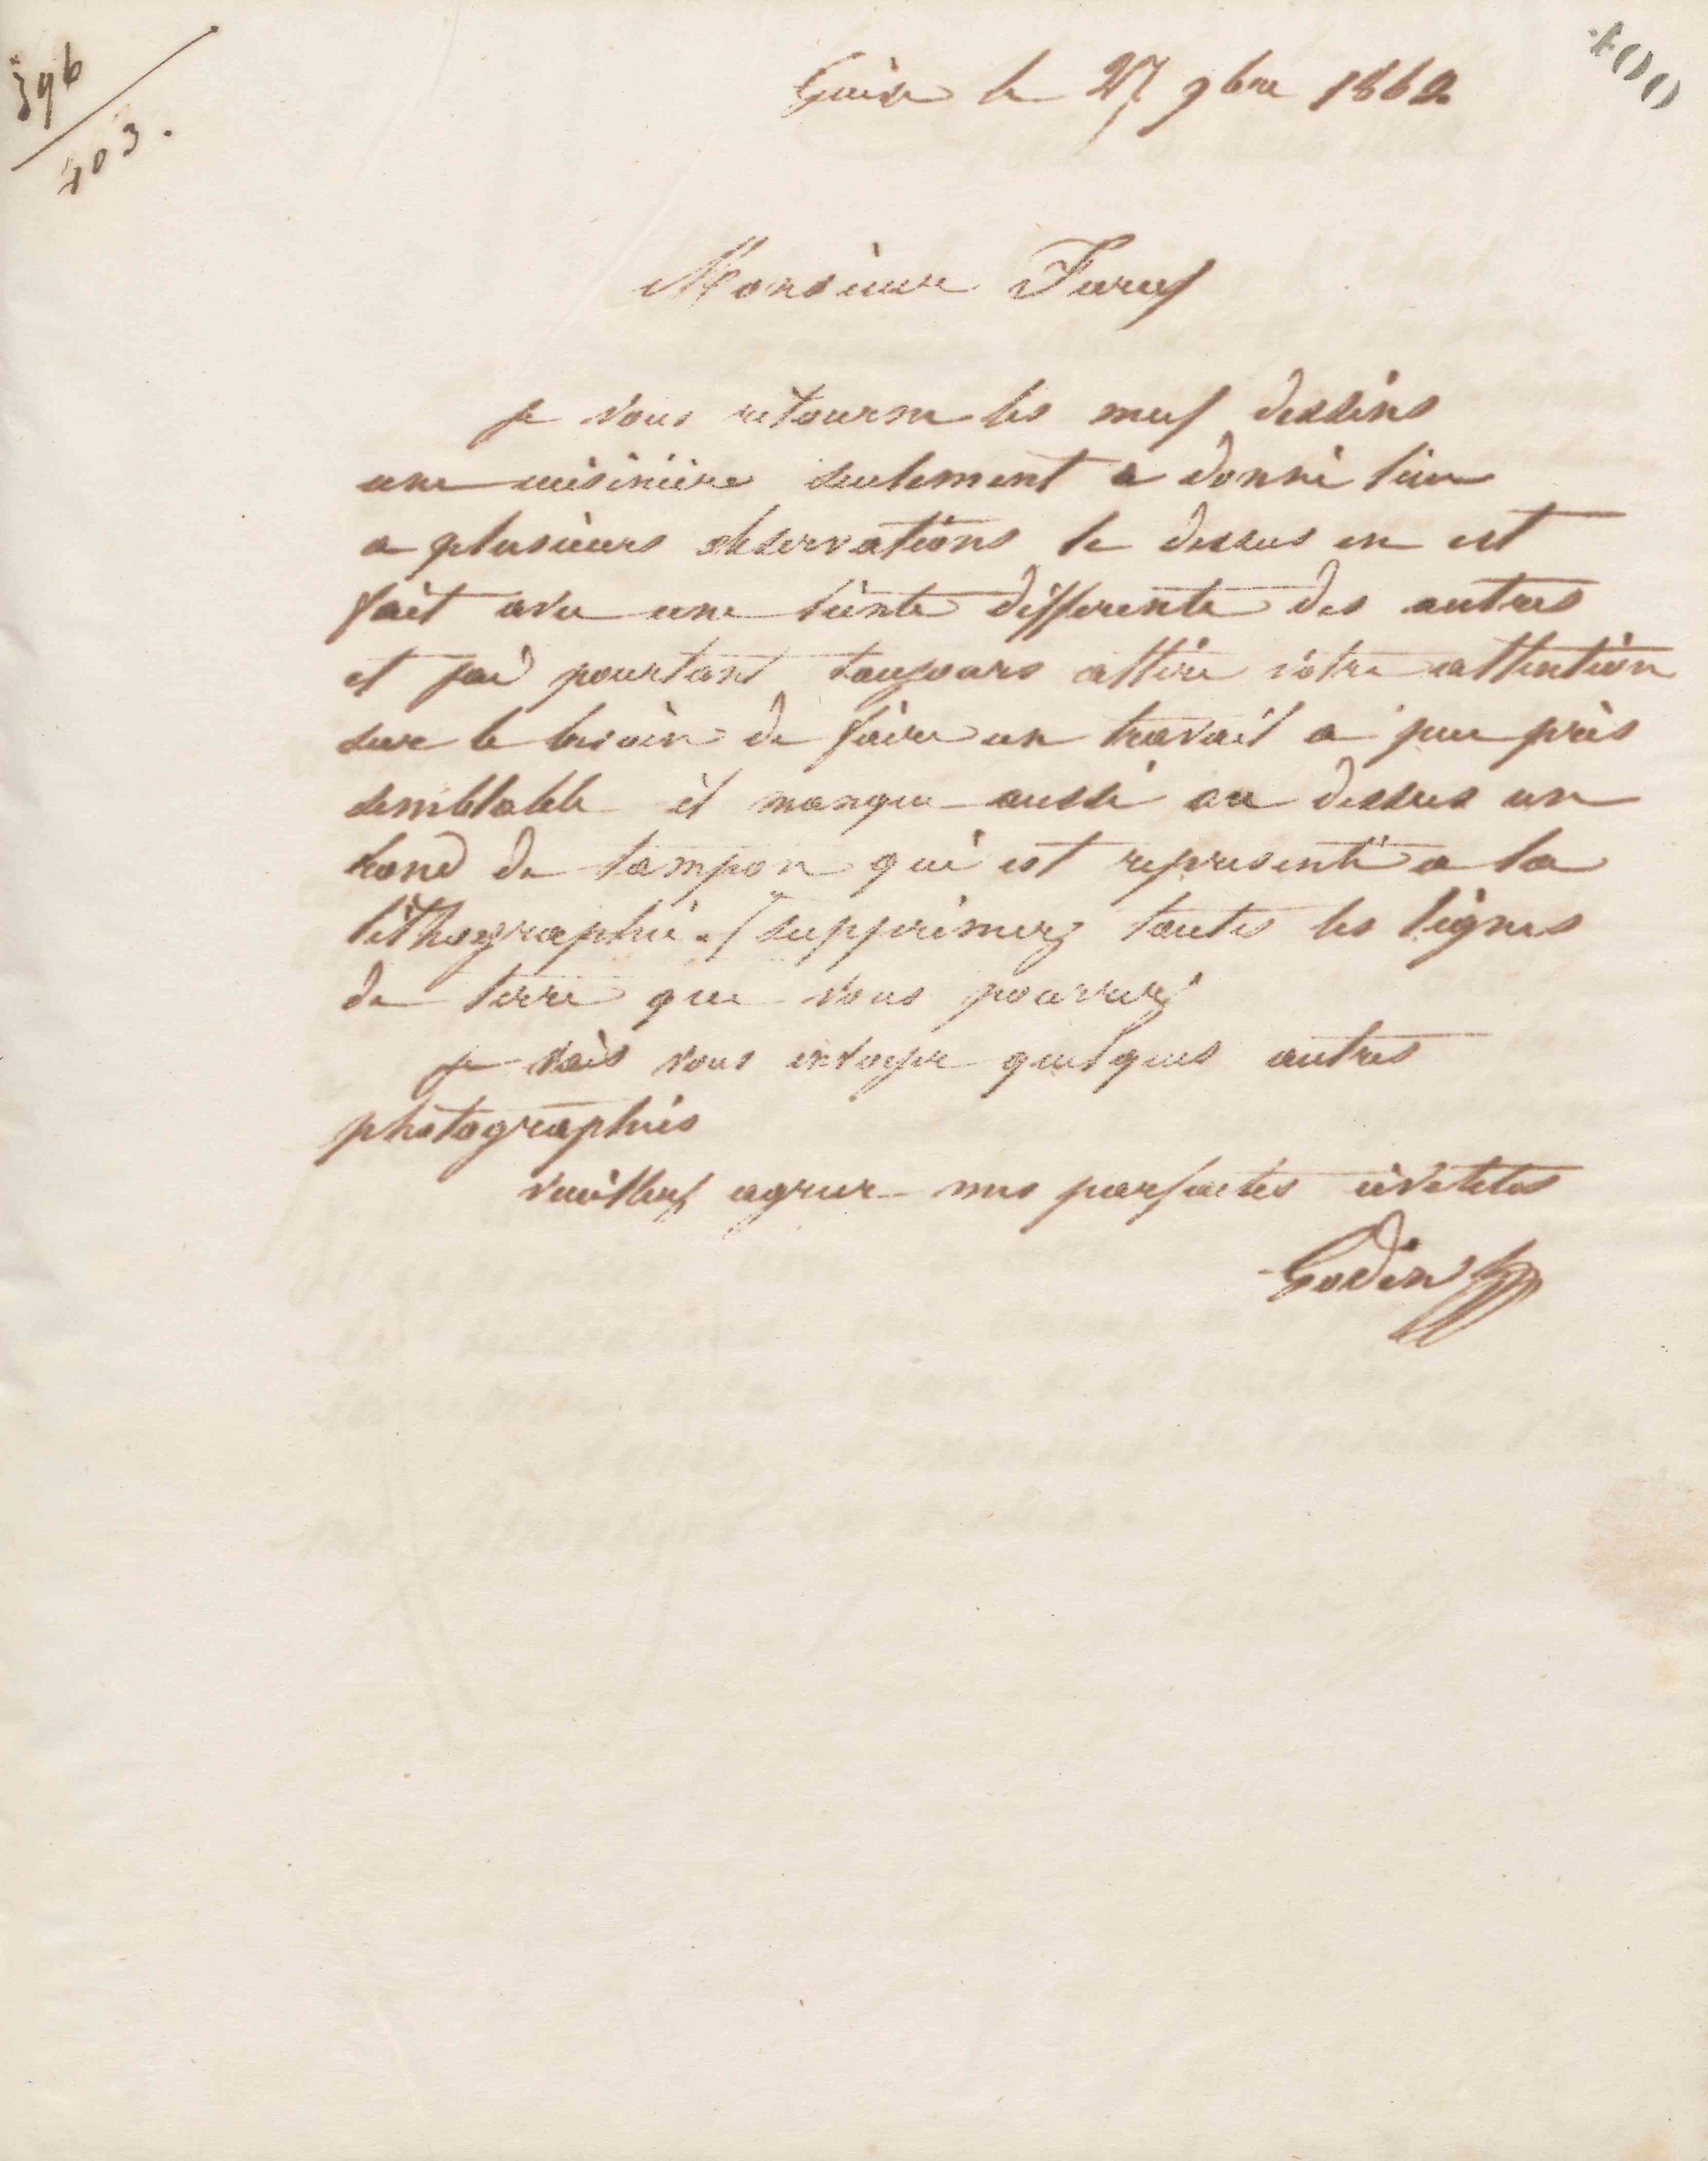 396
403.
400
Guise le 27 9bre 1862
Monsieur
je vous retourne les neuf dessins
une cuisiniere seulement a donné lieu
a plusieurs observations le dessus en est
fait avec une teinte differente des autres
et jai pourtant toujours attiré votre attention
sur le besoin de faire un travail a peu près
semblable il manque aussi au dessus un
rond de tampon qui est representé a la
lithographie. / supprimez toutes les lignes
de terre que vous pourrez
je vais vous envoyer quelques autres
photographies
veuillez agreer mes parfaites civilites
Godin